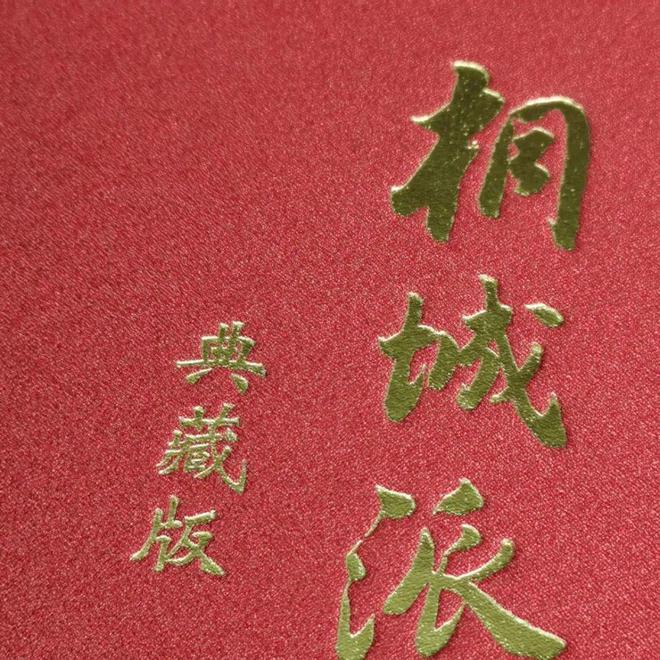 桐城派
典藏版